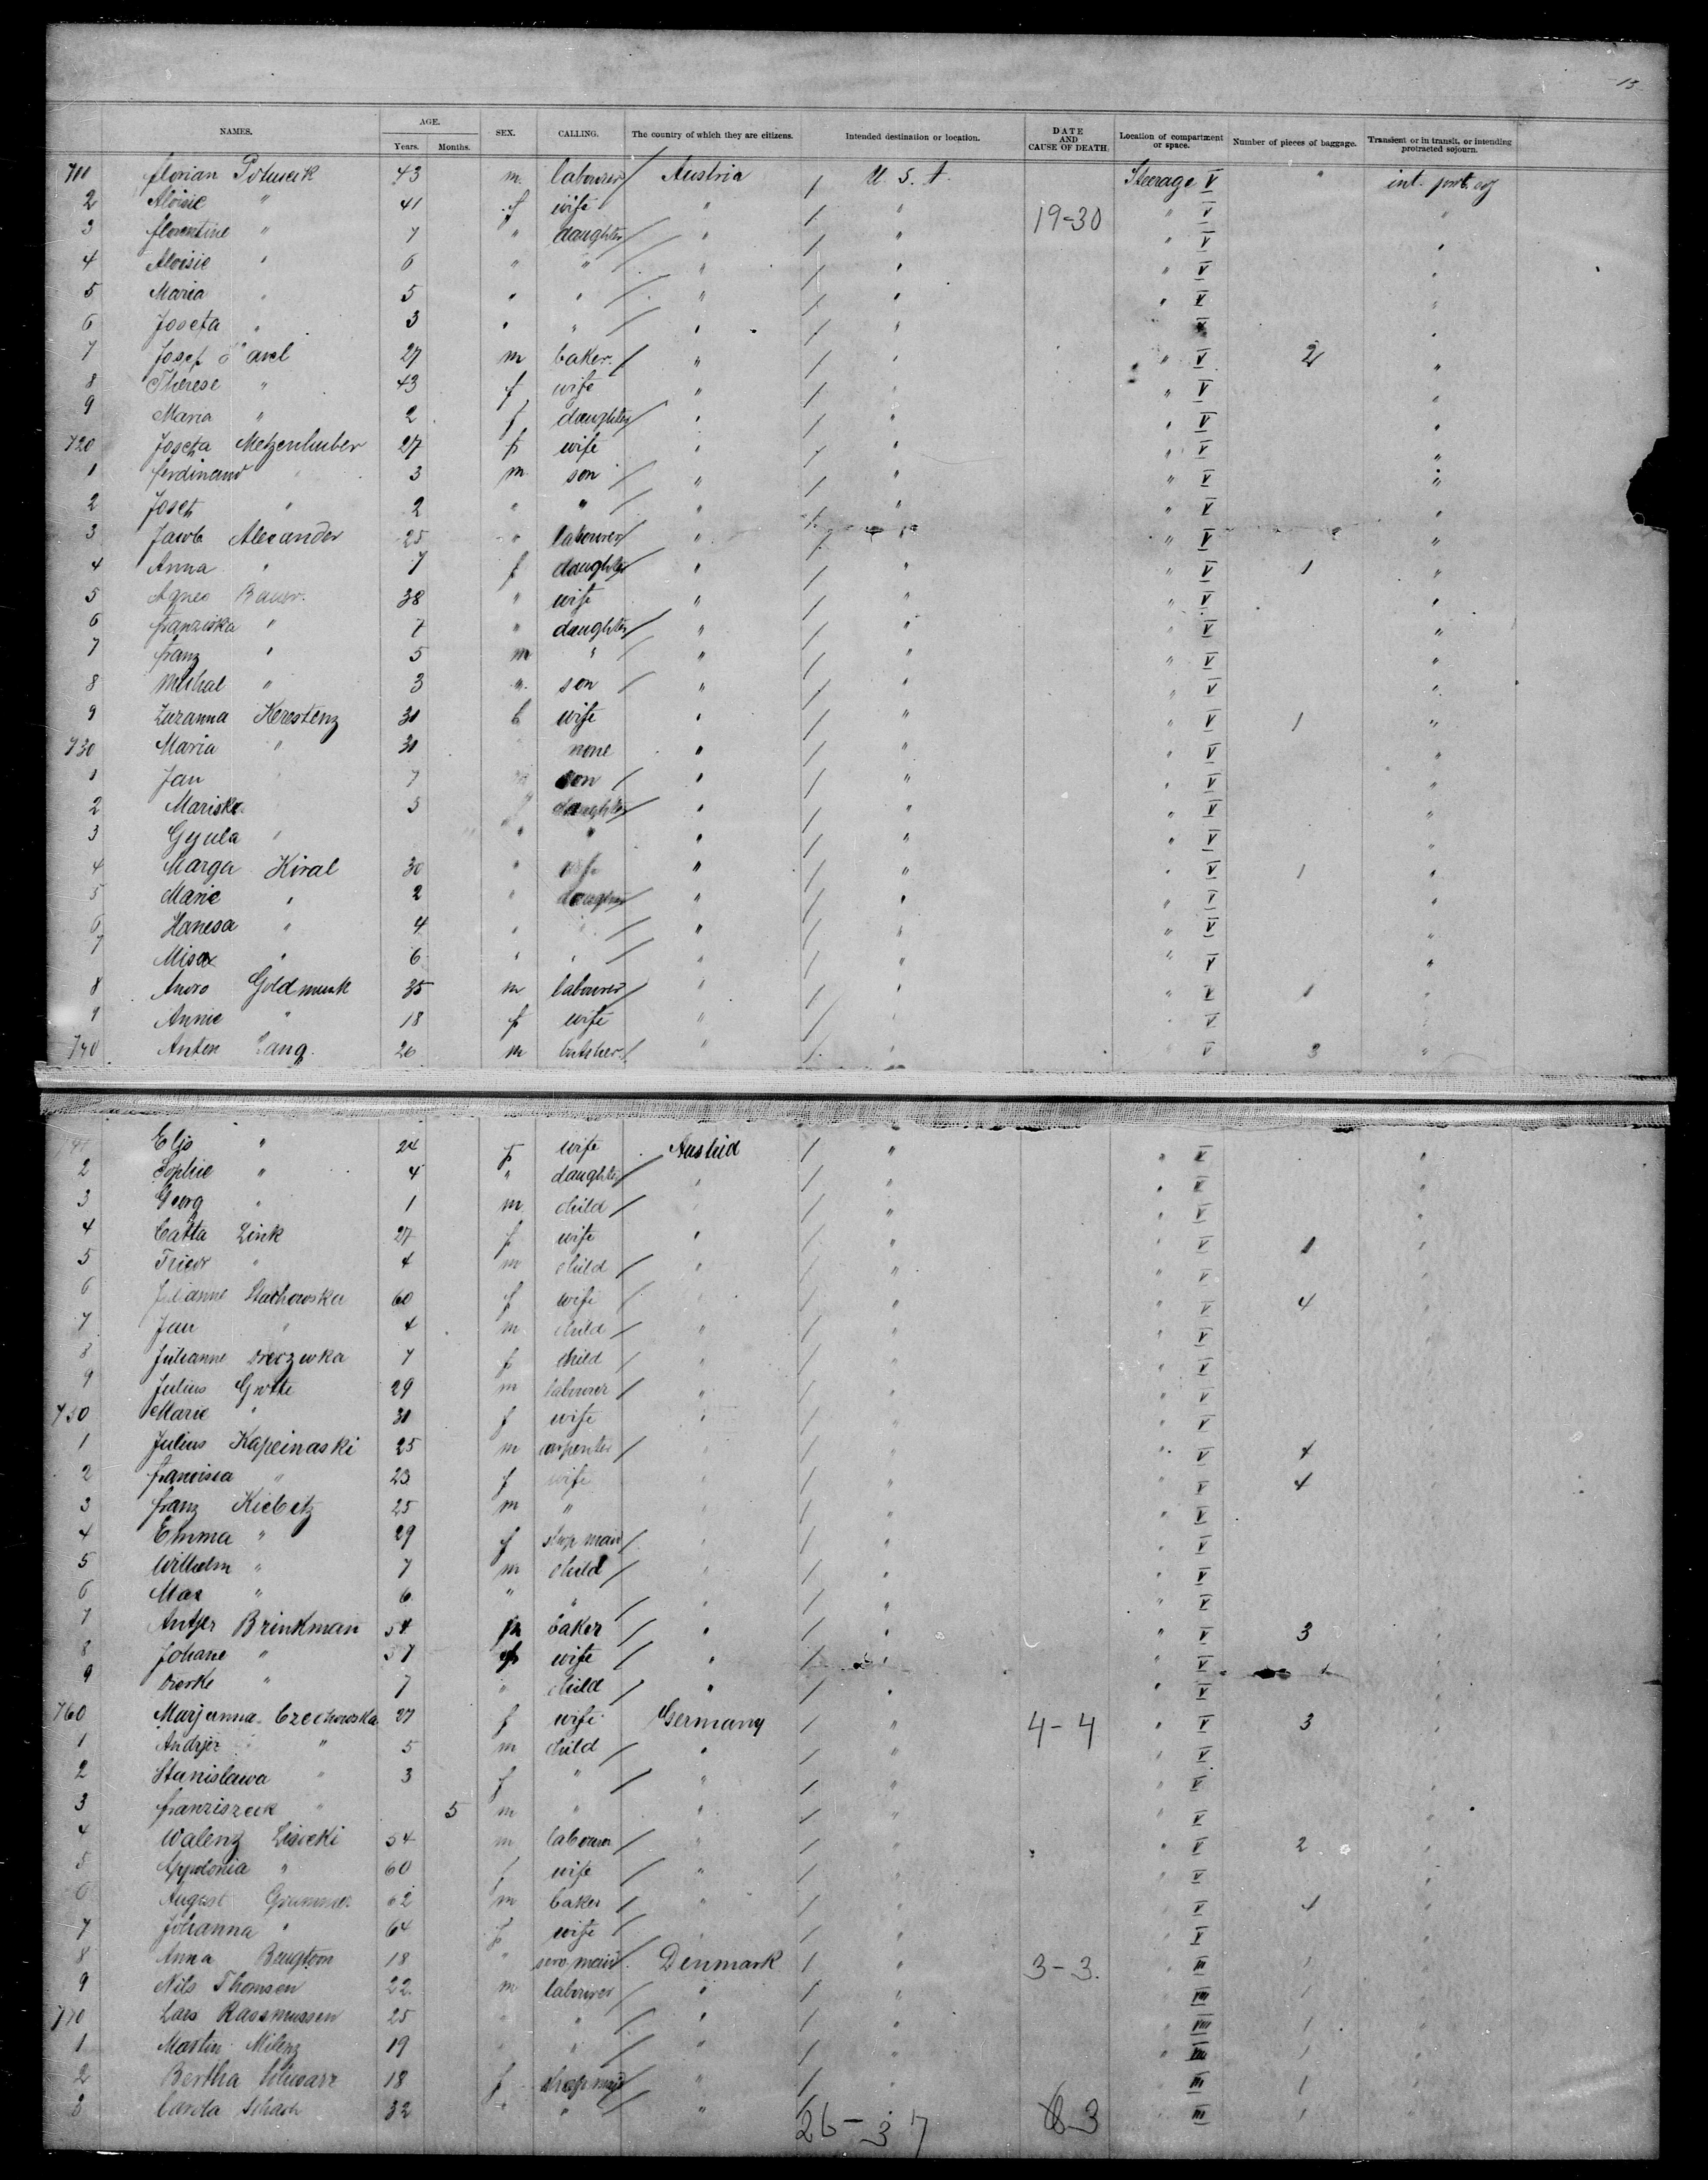 13
NAMES. AGE. Years. Months. SEX. CALLING. The country of which they are citizens. Intended destination or location. DATE AND CAUSE OF DEATH. Location of compartment or space. Number of pieces of baggage. Transient or in transit, or intending protracted sojourn.
Florian 43 m labourer / Austria / U. S. A. Steerage V " int. prot. soj
2 Aloisie " 41 f wife " / " 19-30 " V "
3 Florentine " 7 " daughter / " / " " V "
4 Aloisie " 6 " " / " / " " V "
5 Maria " 5 " " / " / " " V "
6 Josefa " 3 " " / " / " " V "
7 Josef 27 m baker / " / " " V 2 "
8 Therese " 43 f wife " / " " V "
9 Maria " 2 f daughter / " / " " V "
720 Josefa Metzenhuber 27 f wife " / " " V "
1 Ferdinand 3 m son / " / " " V "
2 Josef " 2 " " / " / " " V "
3 Jacob Alexander 25 " labourer / " / " " V "
4 Anna " 7 f daughter " / " " V 1 "
5 Agnes Bauer 38 " wife " / " " V "
6 Franziska " 7 " daughter / " / " " V "
7 Franz " 5 m " / " / " " V "
8 Michal " 3 " son / " / " " V "
9 Zuzanna Kerestenz 30 f wife " / " " V 1 "
730 Maria " 30 none " / " " V "
1 Jan " 7 son / " / " " V "
2 Mariska 5 f daughter / " / " " V "
3 Gyula " " " " / " " V "
4 Marga Kiral 30 " wife " / " " V 1 "
5 Marie " 2 " daughter / " / " " V "
6 Hanesa " 4 " " / " / " " V "
7 Misa " 6 " " / " / " " V "
8 Goldmunk 35 m labourer / " / " " V 1 "
9 Annie " 18 f wife " / " " V "
740 Anton Lang 26 m butcher / " / " " V 3 "
" 24 f wife Austria / " " V "
2 Sophie " 4 " daughter / " / " " V "
3 Georg " 1 m child / " / " " V "
4 Link 27 f wife " / " " V 1 "
5 " 4 m child / " / " " V "
6 Julianne Stachowska 60 f wife " / " " V 4 "
7 Jan " 4 m child / " / " " V "
8 Julianne 7 f child / " / " " V "
9 Julius Grotte 29 m labourer / " / " " V "
750 Marie " 30 f wife " / " " V "
1 Julius Kapcinaski 25 m carpenter / " / " " V 4 "
2 " 23 f wife " / " " V 4 "
3 Franz Kiebitz 25 m " " / " " V "
4 Emma " 29 f / " / " " V "
5 Wilhelm " 7 m child / " / " " V "
6 Max " 6 " " / " / " " V "
7 Antjer Brinkman 54 m baker / " / " " V 3 "
8 Johane " 57 f wife / " / " " V "
9 " 7 " child / " / " " V "
760 Marjanna Czechowska 27 f wife Germany / " 4-4 " V 3 "
1 Andrjez " 5 m child / " / " " V "
2 Stanislawa " 3 f " / " / " " V "
3 Franziszek " 5 m " " / " " V "
4 Walenz Lisocki 54 m labourer / " / " " V 2 "
5 Appolonia " 60 f wife / " / " " V "
6 August 62 m baker / " / " " V 4 "
7 Johanna " 64 f wife / " / " " V "
8 Anna 18 " serv. maid Denmark / " 3-3. " III 1 "
9 Nils Thomsen 22 m labourer / " / " " VIII 1 "
770 Lars Rassmussen 25 " " / " / " " VIII 1 "
1 Martin Milenz 19 " " / " / " " VIII 1 "
2 Bertha Schwarz 18 f / " / " " III 1 "
3 Carola 32 " " / " 26-37 63 " III 1 "